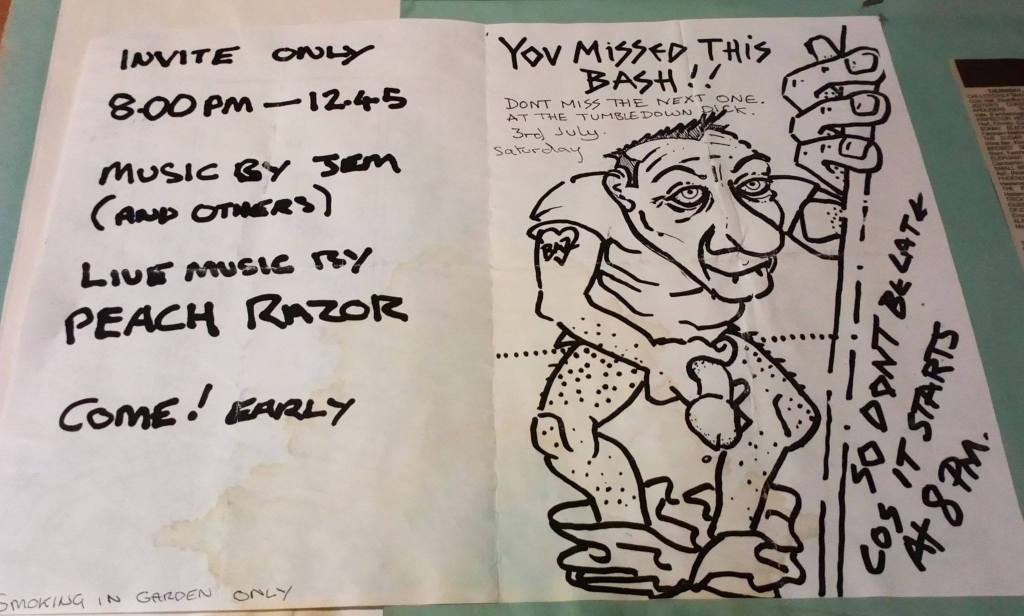 INVITE ONLY
8.00 PM — 12.45
MUSIC BY JEM
(AND OTHERS)
LIVE MUSIC BY
PEACH RAZOR
COME! EARLY
SMOKING IN GARDEN ONLY
YOU MISSED THIS
BASH!!
DONT MISS THE NEXT ONE.
AT THE TUMBLEDOWN DICK.
3rd July.
Saturday
BAZ
SO DONT BE LATE
COS IT STARTS
At 8 PM.